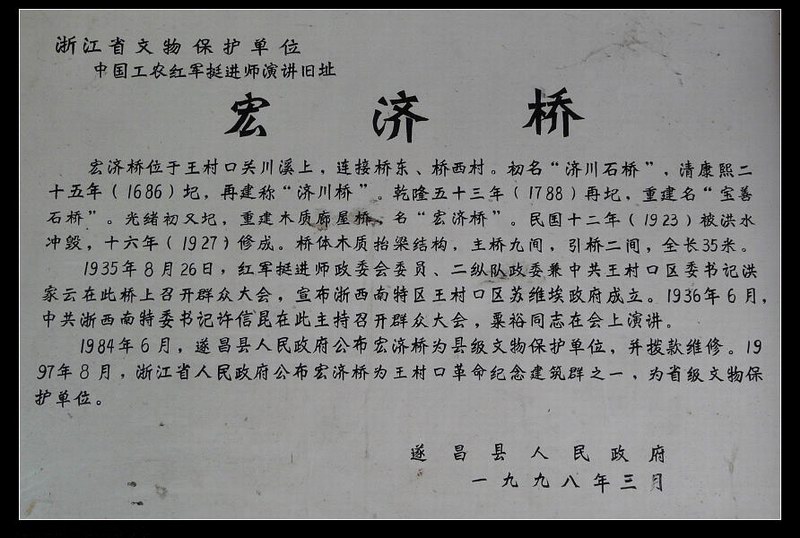 浙江省文物保护单位
中国工农红军挺进师演讲旧址
宏济桥
宏济桥位于王村口关川溪上，连接桥东、桥西村。初名“济川石桥”，清康熙二
十五年（1686）圮，再建称“济川桥”。乾隆五十三年（1788）再圮，重建名“宝善
石桥”。光绪初又圮，重建木质廊屋桥，名“宏济桥”。民国十二年（1923）被洪水
冲毁，十六年（1927）修成。桥体木质抬梁结构，主桥九间，引桥二间，全长35米。
1935年8月26日，红军挺进师政委会委员、二纵队政委兼中共王村口区委书记洪
家云在此桥上召开群众大会，宣布浙西南特区王村口区苏维埃政府成立。1936年6月，
中共浙西南特委书记许信昆在此主持召开群众大会，粟裕同志在会上演讲。
1984年6月，遂昌县人民政府公布宏济桥为县级文物保护单位，并拨款维修。19
97年8月，浙江省人民政府公布宏济桥为王村口革命纪念建筑群之一，为省级文物保
护单位。
遂昌县人民政府
一九九八年三月